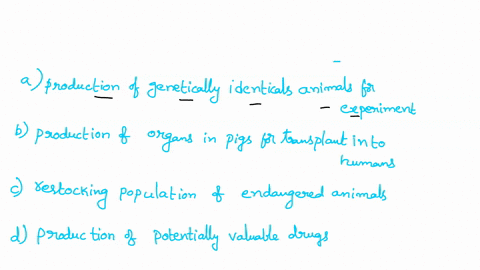 a) production of genetically identicals animals for
experiment
b) production of organs in pigs for transplant in to
humans
c) restocking population of endangered animals
d) production of potentially valuable drugs